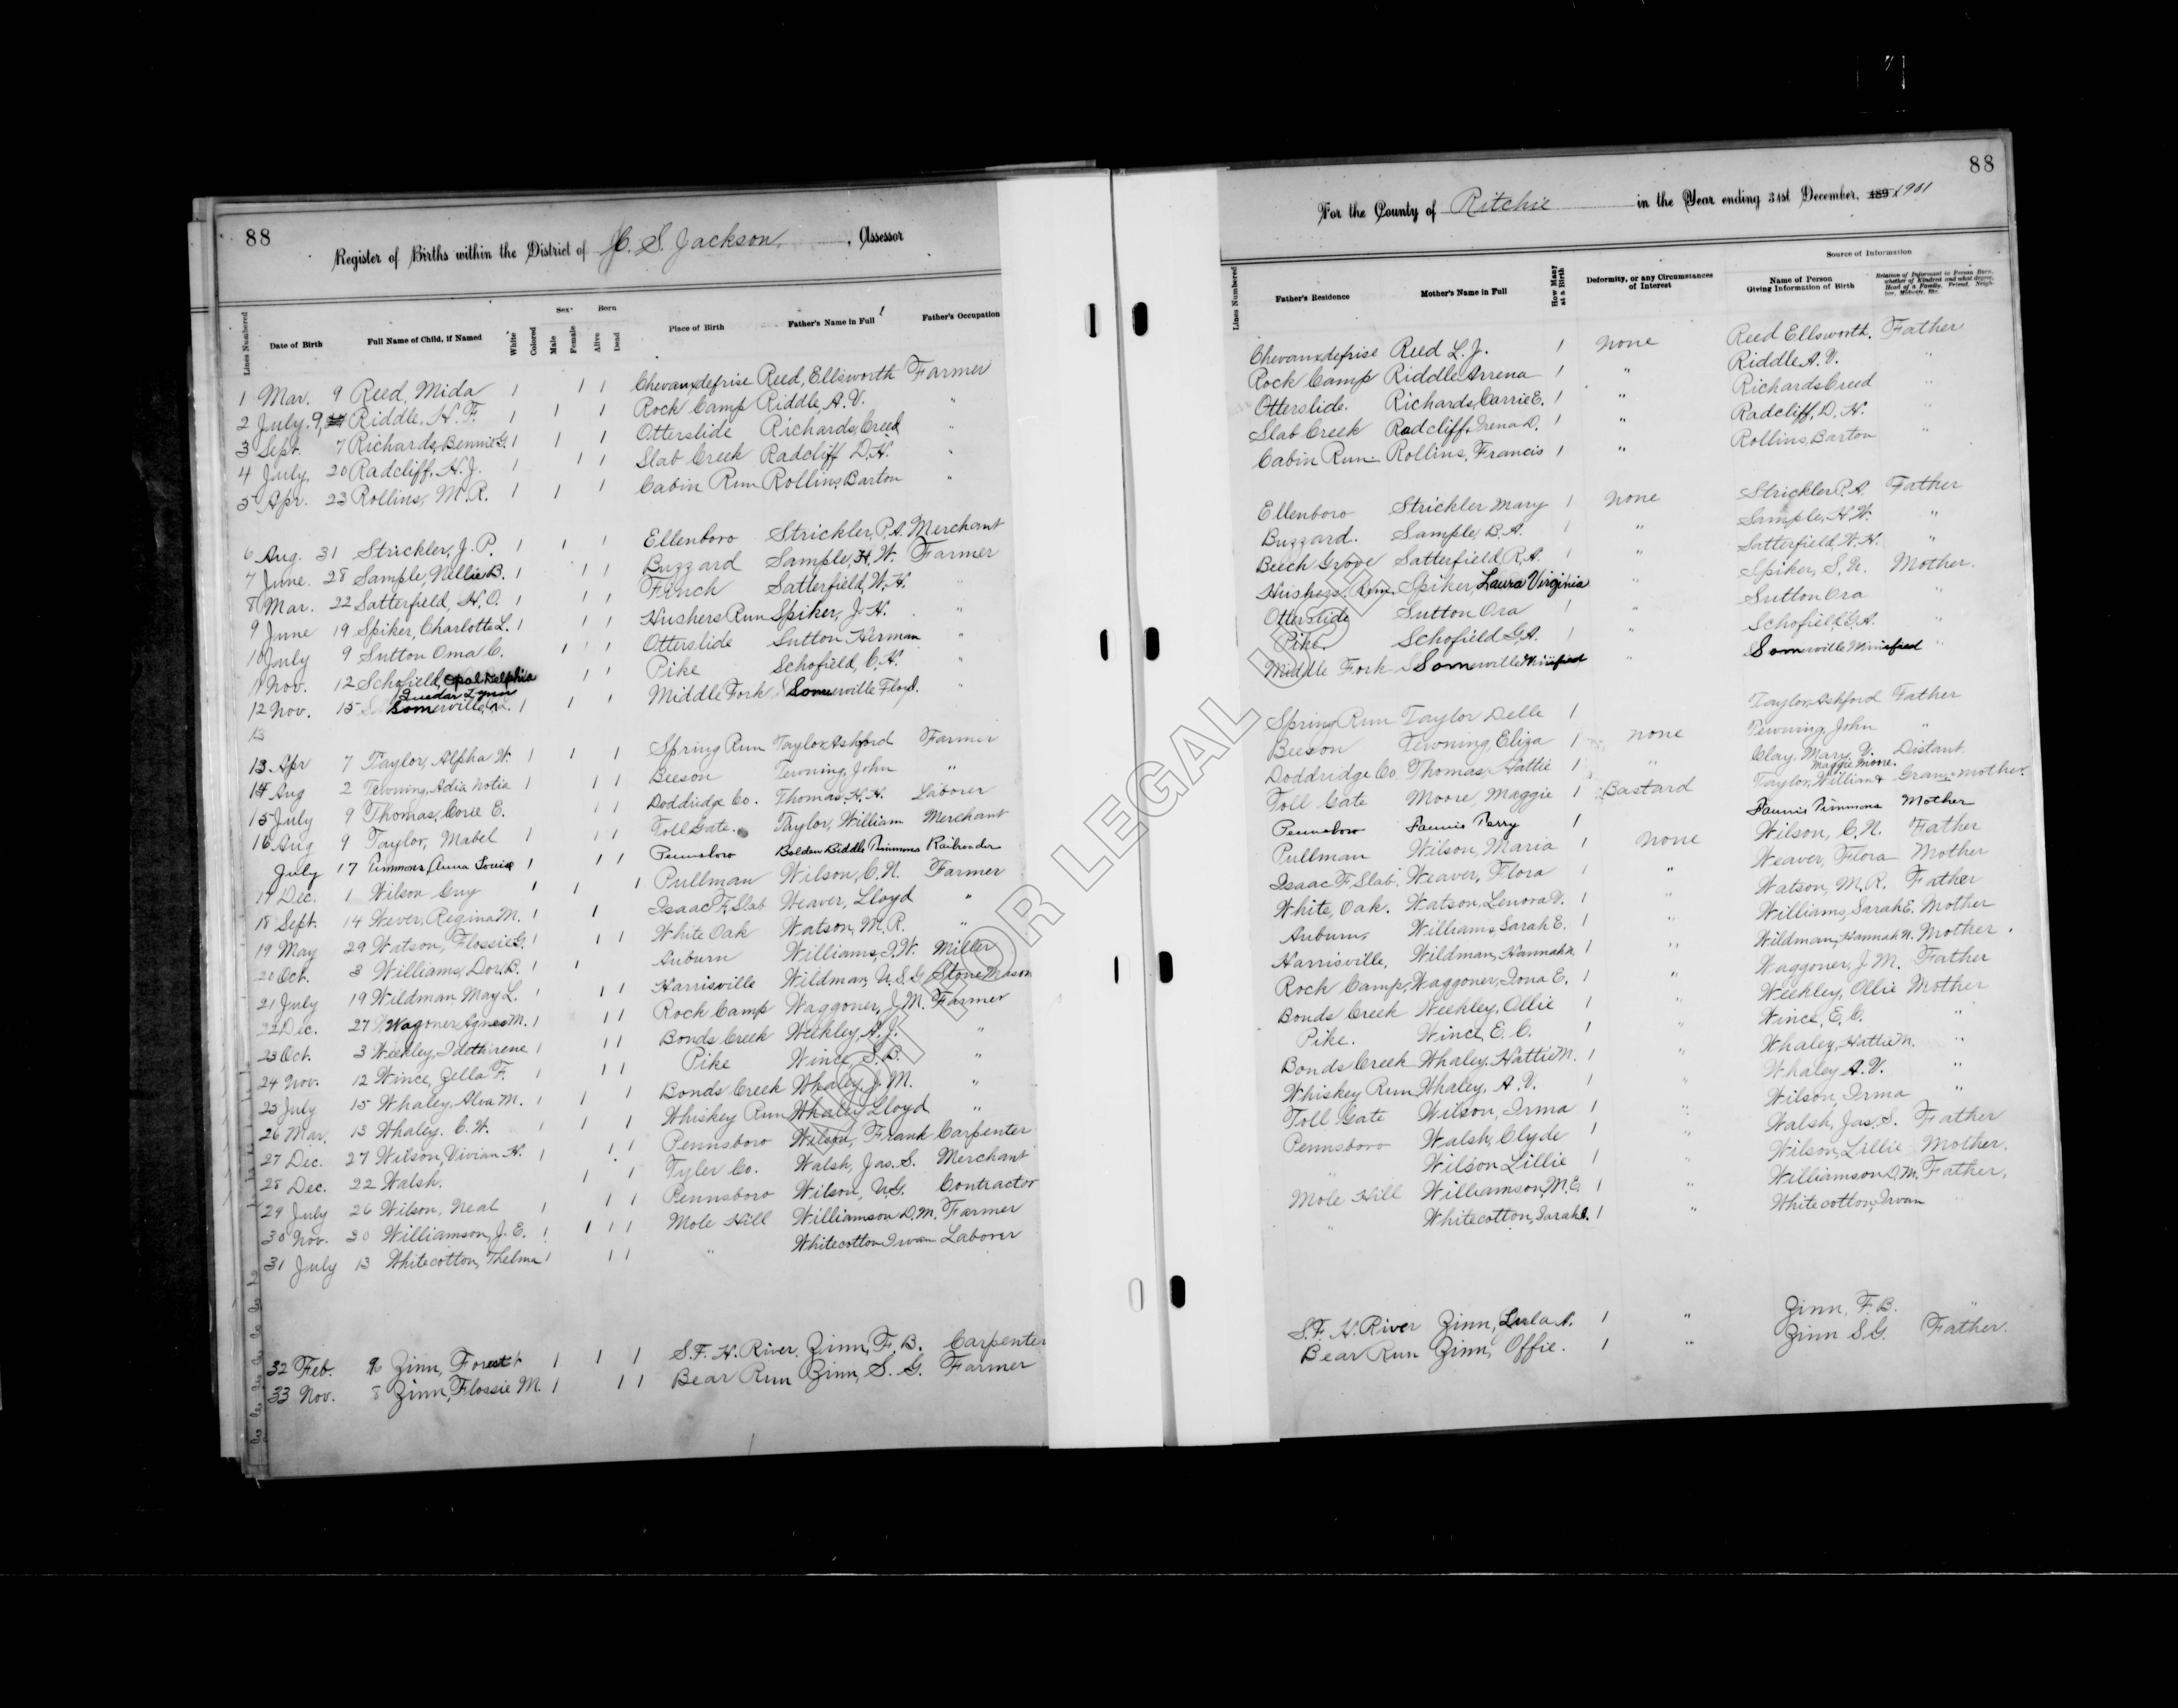 88
Register of Births within the District of H. S. Jackson, Assessor
Lines Numbered
Date of Birth
Full Name of Child, if Named
White
Colored
Sex
Male
Female
Born
Alive
Dead
Place of Birth
Father's Name in Full
Father's Occupation
1 Mar. 9 Reed, Mida 1 1 1 Chevauxdefrise Reed, Ellsworth Farmer
2 July 9, Riddle, H. F. 1 1 1 Rock Camp Riddle, A. V. "
3 Sept. 7 Richards, Bennie G. 1 1 1 Otterslide Richards, Creed "
4 July 20 Radcliff, H. J. 1 1 1 Slab Creek Radcliff D. H. "
5 Apr. 23 Rollins, M. R. 1 1 1 Cabin Run Rollins, Barton "
6 Aug. 31 Strickler, J. P. 1 1 1 Ellenboro Strickler, P. A. Merchant
7 June 28 Sample, Nellie B. 1 1 1 Buzzard Sample, H. W. Farmer
8 Mar. 22 Satterfield, H. O. 1 1 1 Finch Satterfield, W. H. "
9 June 19 Spiker, Charlotte L. 1 1 1 Hushers Run Spiker, J. H. "
10 July 9 Sutton Oma C. 1 1 Otterslide Sutton Herman "
11 Nov. 12 Schofield, Opal Delphia 1 1 Pike Schofield, C. H. "
12 Nov. 15 Somerville, 1 1 1 Middle Fork Somerville Floyd. "
13
13 Apr 7 Taylor, Alpha W. 1 1 1 Spring Run Taylor Ashford Farmer
14 Aug 2 Tewning, Adia Notia 1 1 1 Beeson Tewning, John "
15 July 9 Thomas, Corie E. 1 1 Doddridge Co. Thomas, H. H. Laborer
16 Aug 9 Taylor, Mabel 1 1 1 Toll Gate. Taylor, William Merchant
July 17 Timmons, Anna Louise 1 1 1 Pennsboro Bolden Biddle Timmons Railroader
17 Dec. 1 Wilson Guy 1 1 1 Pullman Wilson, C. N. Farmer
18 Sept. 14 Wever, Regina M. 1 1 Isaac F. Slab Weaver, Lloyd "
19 May 29 Watson, Flossie G. 1 1 1 White Oak Watson, M. R. "
20 Oct. 3 Williams, Dor. B. 1 1 Auburn Williams, I. W. Miller
21 July 19 Wildman May L. 1 1 1 Harrisville Wildman, U. S. G. Stone Mason
22 Dec. 27 Wagoner Agnes M. 1 1 1 Rock Camp Waggoner, J. M. Farmer
23 Oct. 3 Weekley, 1 1 1 Bonds Creek Weekley, A. J. "
24 Nov. 12 Wince, Zella F. 1 1 1 Pike Wince, S. B. "
25 July 15 Whaley, Alva M. 1 1 1 Bonds Creek Whaley, J. M. "
26 Mar. 13 Whaley. C. W. 1 1 1 Whiskey Run Whaley Lloyd "
27 Dec. 27 Wilson, Vivian H. 1 1 1 Pennsboro Wilson, Frank Carpenter
28 Dec. 22 Walsh. 1 1 Tyler Co. Walsh, Jas. S. Merchant
29 July 26 Wilson, Neal 1 1 1 Pennsboro Wilson, U. G. Contractor
30 Nov. 30 Williamson, J. E. 1 1 1 1 Mole Hill Williamson D. M. Farmer
31 July 13 Whitecotton, Thelma 1 1 1 " Whitecotton Irvan Laborer
32 Feb. Zinn, Forest 1 1 1 S. F. H. River. Zinn, F. B. Carpenter
33 Nov. 8 Zinn, Flossie M. 1 1 1 Bear Run Zinn, S. G. Farmer
88
For the County of Ritchie in the Year ending 31st December, 189 1901
Lines Numbered
Father's Residence
Mother's Name in Full
How Many at a Birth
Deformity, or any Circumstances of Interest
Source of Information
Name of Person Giving Information of Birth
Relation of Informant to Person Born, whether of Kindred and what degree, Head of a Family, Friend, Neighbor, Midwife, Etc.
Chevauxdefrise Reed L. J. 1 none Reed Ellsworth. Father
Rock Camp Riddle Arrena 1 " Riddle A. V. "
Otterslide. Richards, Carrie E. 1 " Richards Creed "
Slab Creek Radcliff, Irena D. 1 " Radcliff, D. H. "
Cabin Run Rollins, Francis 1 " Rollins, Barton "
Ellenboro Strickler Mary 1 none Strickler P. A. Father
Buzzard. Sample, B. A. 1 " Sample, H. W. "
Beech Grove Satterfield, R. A. 1 " Satterfield, W. H. "
Hushers Run. Spiker, Laura Virginia " Spiker, S. N. Mother.
Otterslide Sutton Ora 1 " Sutton Ora "
Pike. Schofield G. A. 1 " Schofield, G. A. "
Middle Fork Somerville Winifred " Somerville Winifred "
Spring Run Taylor Delle 1 Taylor, Ashford Father
Beeson Tewning, Eliza 1 none Tewning, John "
Doddridge Co. Thomas, Hattie 1 " Clay, Mary V. Distant.
Maggie Moore.
Toll Gate Moore, Maggie 1 Bastard Taylor, William & Grand-mother.
Pennsboro Fannie Perry 1 Fannie Timmons Mother
Pullman Wilson, Maria 1 none Wilson, C. N. Father
Isaac F. Slab. Weaver, Flora 1 " Weaver, Flora Mother
White, Oak. Watson, Lenora V. 1 " Watson, M. R. Father
Auburn, Williams, Sarah E. 1 " Williams, Sarah E. Mother
Harrisville, Wildman, Hannah N. 1 " Wildman, Hannah N. Mother.
Rock Camp, Waggoner, Iona E. 1 " Waggoner, J. M. Father
Bonds Creek Weekley, Ollie 1 " Weekley, Ollie Mother
Pike. Wince, E. C. 1 " Wince, E. C. "
Bonds Creek Whaley. Hattie M. 1 " Whaley, Hattie M. "
Whiskey Run Whaley, A. V. 1 " Whaley A. V. "
Toll Gate Wilson, Irma 1 " Wilson, Irma "
Pennsboro Walsh, Clyde 1 " Walsh, Jas. S. Father
" Wilson Lillie 1 " Wilson, Lillie Mother.
Mole Hill Williamson, M. E. 1 " Williamson D. M. Father,
" Whitecotton, Sarah E. 1 " Whitecotton, Irvan "
S. F. H. River Zinn, Lula A. 1 " Zinn, F. B. "
Bear Run Zinn, Offie. 1 " Zinn S. G. Father.
NOT FOR LEGAL USE.